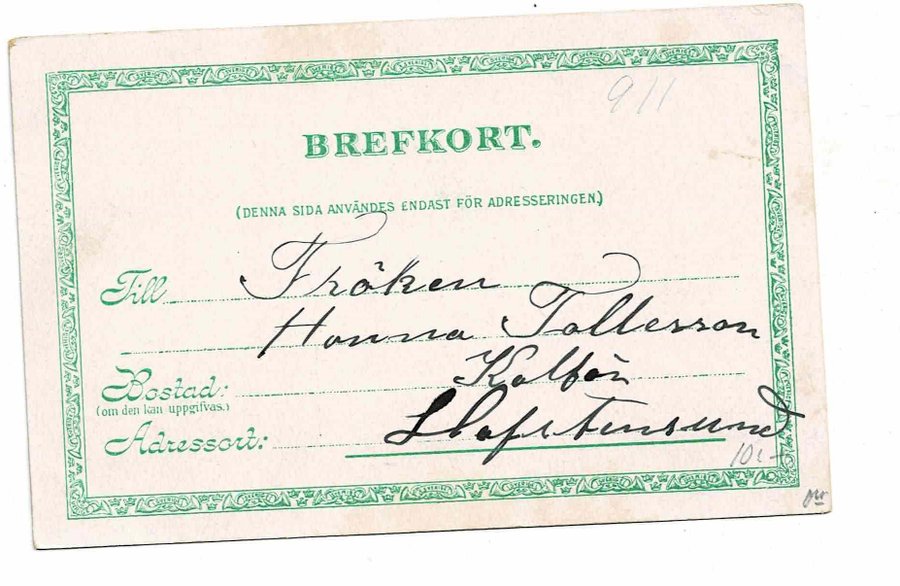 911
BREFKORT.
(DENNA SIDA ANVÄNDES ENDAST FÖR ADRESSERINGEN.)
Till Fröken
Hanna Tollesson
Kalfön
Bostad:
(om den kan uppgifvas.)
Adressort:
10:-